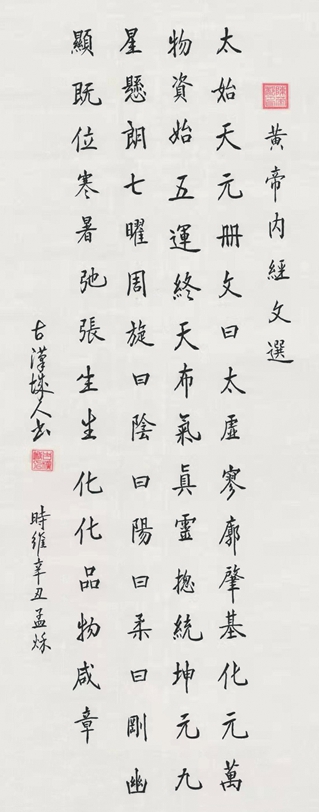 黄帝内經文選
太始天元冊文曰太虛寥廓肇基化元萬
物資始五運終天布氣真靈揔統坤元九
星懸朗七曜周旋曰陰曰陽曰柔曰剛幽
顯既位寒暑弛張生生化化品物咸章
古漢城人书
時維辛丑孟秌